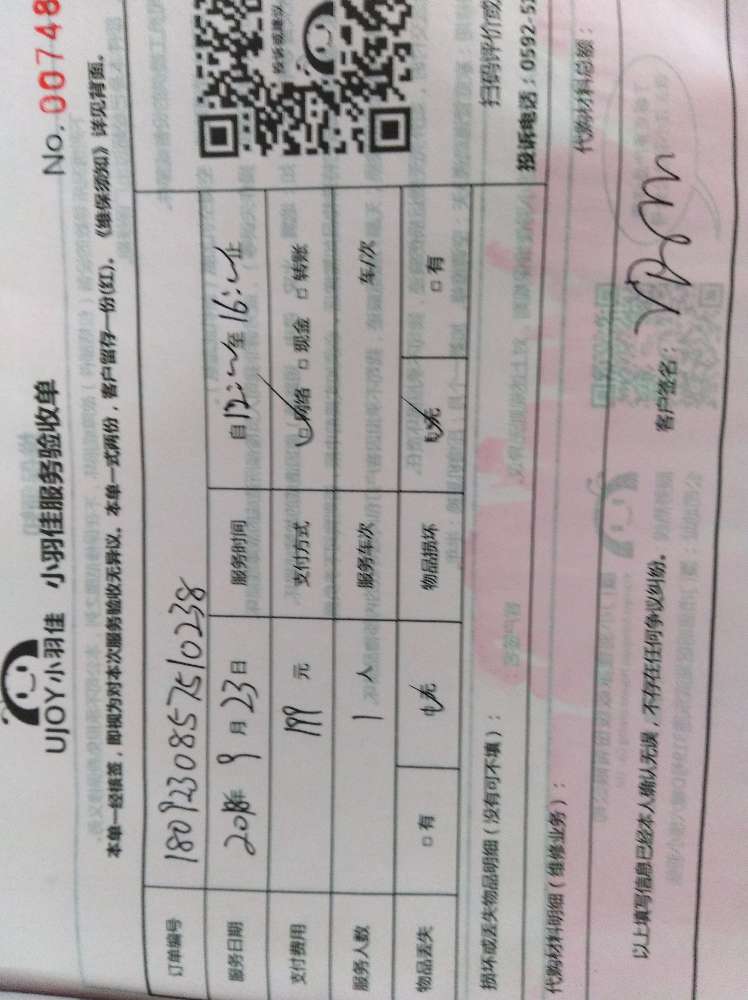 No. 00748
UJOY小羽佳 小羽佳服务验收单
本单一经核签，即视为对本次服务验收无异议。本单一式两份，客户留存一份(红)。《维保须知》详见背面。
订单编号 1809230857510238
服务日期 2018年 9 月 23 日 服务时间 自12:00至16:00止
支付费用 199 元 支付方式 □网络 □现金 □转账
服务人数 1 人 服务车次 车/次
物品丢失 □有 □无 物品损坏 □无 □有
扫码评价或
投诉电话：0592-52
损坏或丢失物品明细（没有可不填）：
代购材料明细（维修业务）： 代购材料总额：
以上填写信息已经本人确认无误，不存在任何争议纠纷。 客户签名：